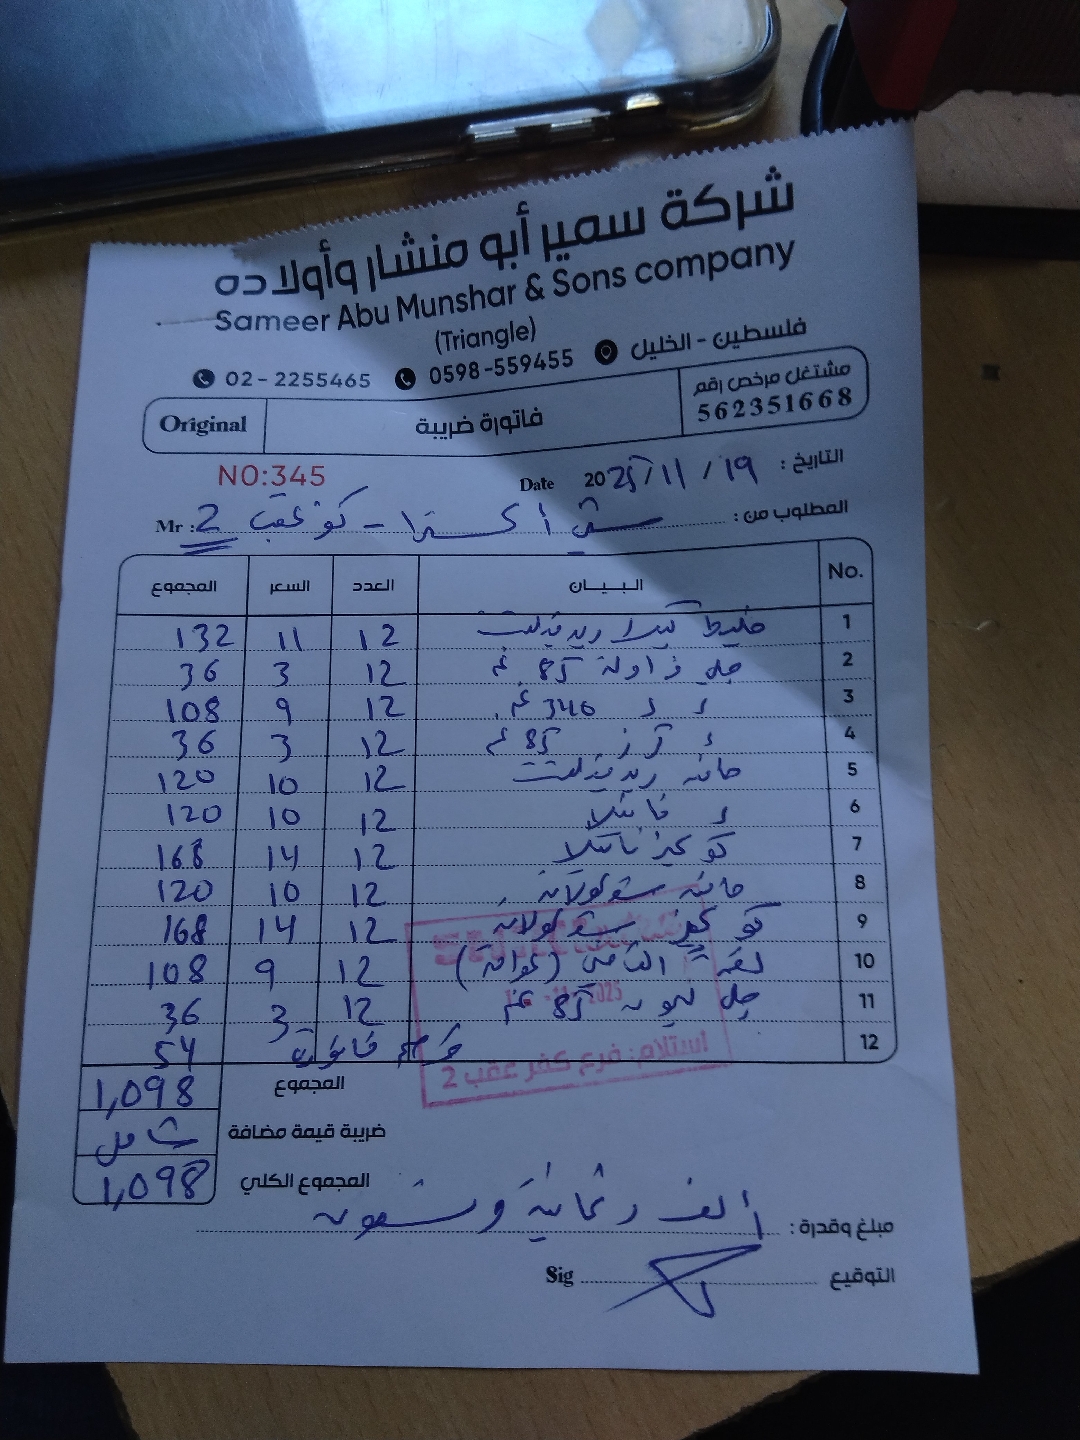 شركة سمير أبو منشار وأولاده
Sameer Abu Munshar & Sons company
(Triangle)
02-2255465 0598-559455 فلسطين - الخليل
مشتغل مرخص رقم
562351668
فاتورة ضريبة
Original
NO:345
التاريخ : 2025/11/19 Date
المطلوب من : - كفر عقب 2 Mr :
No. البيـــان العدد السعر المجموع
1 خليط كيك ريد فيلفيت 12 11 132
2 جلي فراولة 85 غم 12 3 36
3 346 غم 12 9 108
4 كرز 85 غم 12 3 36
5 ريد فيلفيت 12 10 120
6 فانيلا 12 10 120
7 فانيلا 12 14 168
8 شوكولاته 12 10 120
9 شوكولاته 12 14 168
10 12 9 108
11 جلي ليمون 85 غم 12 3 36
12 خصم فاتورة 54
استلام: فرع كفر عقب 2
المجموع 1,098
ضريبة قيمة مضافة شامل
المجموع الكلي 1,098
مبلغ وقدرة : ألف وثمانية وتسعون
التوقيع Sig